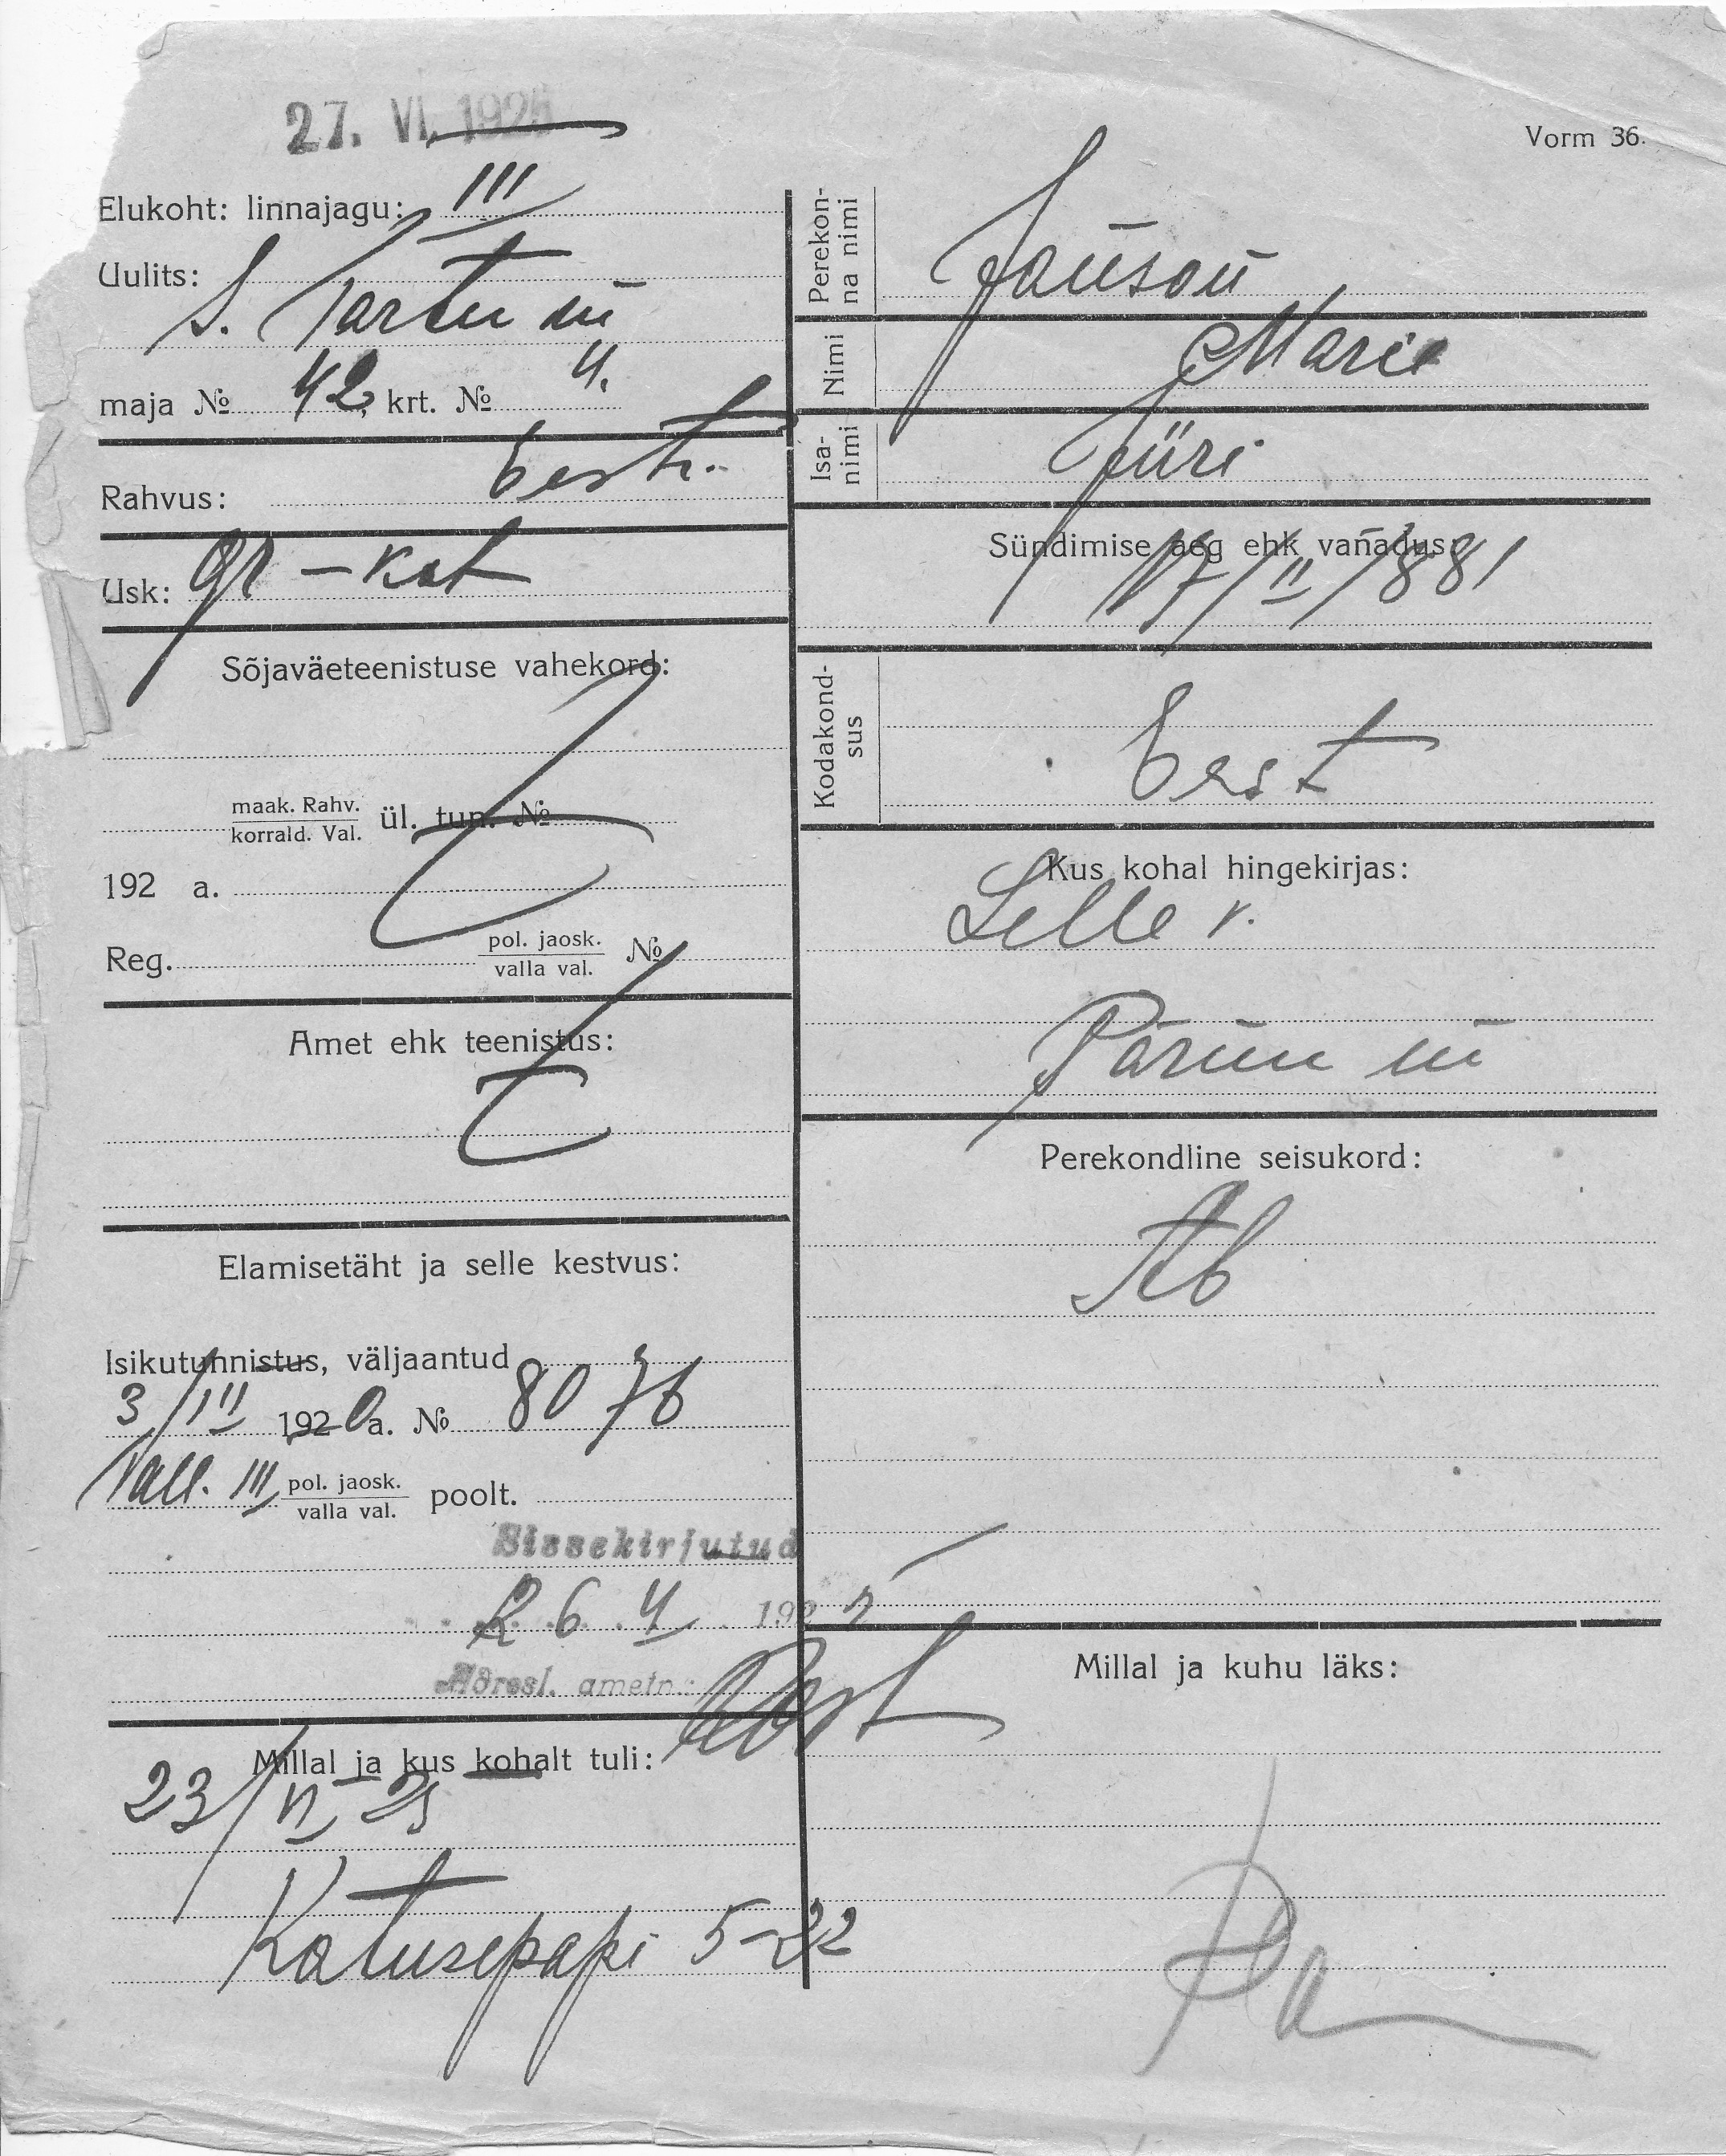 27. VI. 192
Vorm 36.
Elukoht: linnajagu: III
Uulits:
S. Tartu m
maja № 42, krt. № 4.
Rahvus: Eesti.
Usk: gr-kat
Sõjaväeteenistuse vahekord:
maak. Rahv.
korrald. Val. ül. tun. №
192 a.
Reg. pol. jaosk. №
valla val.
Amet ehk teenistus:
Elamisetäht ja selle kestvus:
Isikutunnistus, väljaantud
3/III 1920 a. № 8076
Tall. III pol. jaosk.
valla val. poolt.
Sissekirjutud
26. 192
Adressl. ametn.:
Millal ja kus kohalt tuli:
23/VI 25
Katusepapi 5-22
Perekonna nimi Janson
Nimi Marie
Isanimi Jüri
Sündimise aeg ehk vanadus:
17/II/1881
Kodakondsus
Eest
Kus kohal hingekirjas:
Lelle v.
Pärnu m
Perekondline seisukord:
Ab
Millal ja kuhu läks: